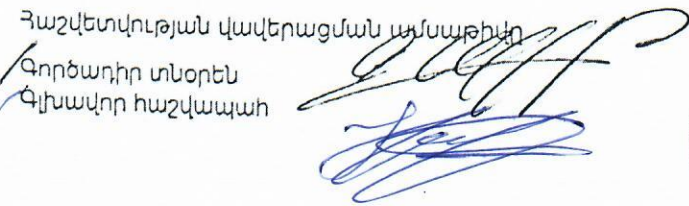 Հաշվետվության վավերացման ամսաթիվը
Գործադիր տնօրեն
Գլխավոր հաշվապահ